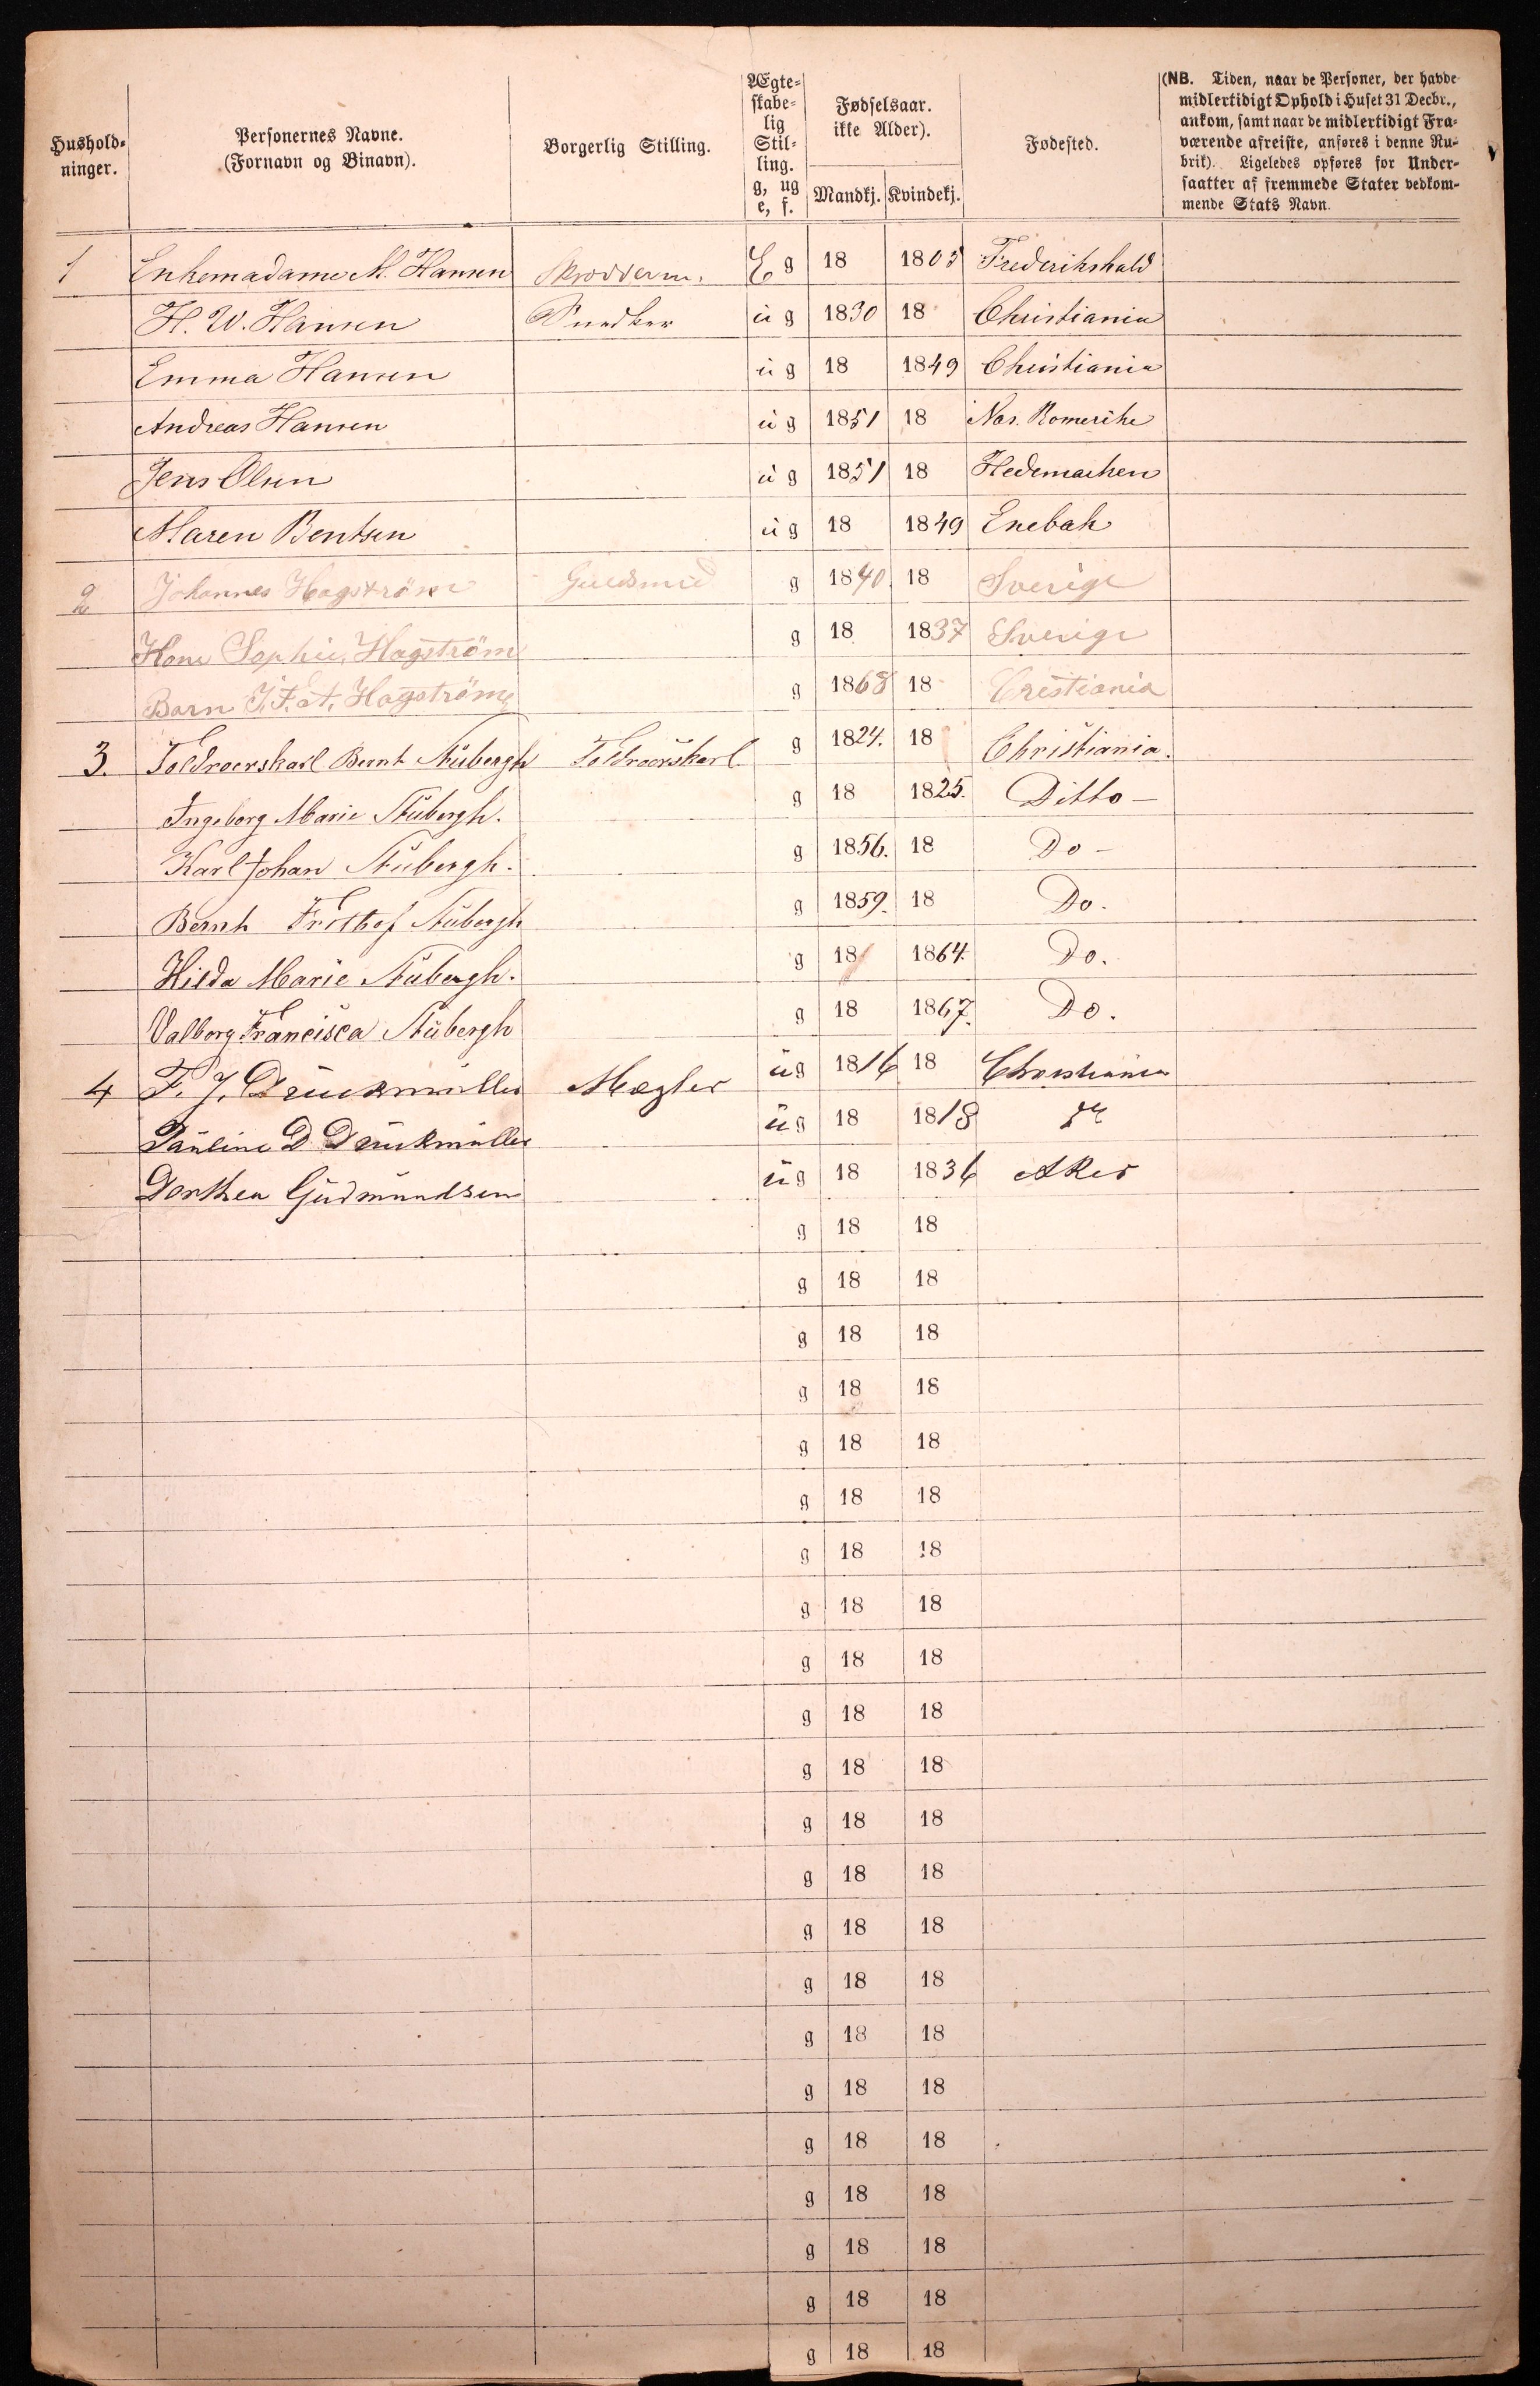 Hushold-ninger. Personernes Navne. (Fornavn og Binavn). Borgerlig Stilling. Ægte-skabe-lig Stil-ling. g, ug e, f. Fødselsaar. ikke Alder). Mandkj. Kvindekj. Fødested.
(NB. Tiden, naar de Personer, der havde
midlertidigt Ophold i Huset 31 Decbr.,
ankom, samt naar de midlertidigt Fra-
værende afreiste, anføres i denne Ru-
brik). Ligeledes opføres for Under-
saatter af fremmede Stater vedkom-
mende Stats Navn.
1 Enkemadame M. Hansen Skrædderm. E g 18 1805 Frederikshald
H. W. Hansen Snedker ug 1830 18 Christiania
Emma Hansen ug 18 1849 Christiania
Andreas Hansen ug 1851 18 Nes. Romerike
Jens Olsen ug 1851 18 Hedemarken
Maren Bentsen ug 18 1849 Enebak
2 Johannes Hagström Guldsmid g 1840. 18 Sverige
Kone Sophie, Hagström g 18 1837 Sverige
Barn J. F. A. Hagström g 1868 18 Cristiania
3. Toldroerskarl Bernt Stubergh Toldroerskarl g 1824. 18 Christiania.
Ingeborg Marie Stubergh. g 18 1825. Ditto -
Karl Johan Stubergh. g 1856. 18 Do -
Bernh Frithof Stubergh g 1859. 18 Do.
Hilda Marie Stubergh. g 18 1864. Do.
Valborg Francisca Stubergh g 18 1867. Do.
4 F. J. Druckmüller Mægler ug 1816 18 Christiania
Pauline D Druckmüller ug 18 1818 do
Dorthea Gudmundsen ug 18 1836 Aker
g 18 18
g 18 18
g 18 18
g 18 18
g 18 18
g 18 18
g 18 18
g 18 18
g 18 18
g 18 18
g 18 18
g 18 18
g 18 18
g 18 18
g 18 18
g 18 18
g 18 18
g 18 18
g 18 18
g 18 18
g 18 18
g 18 18